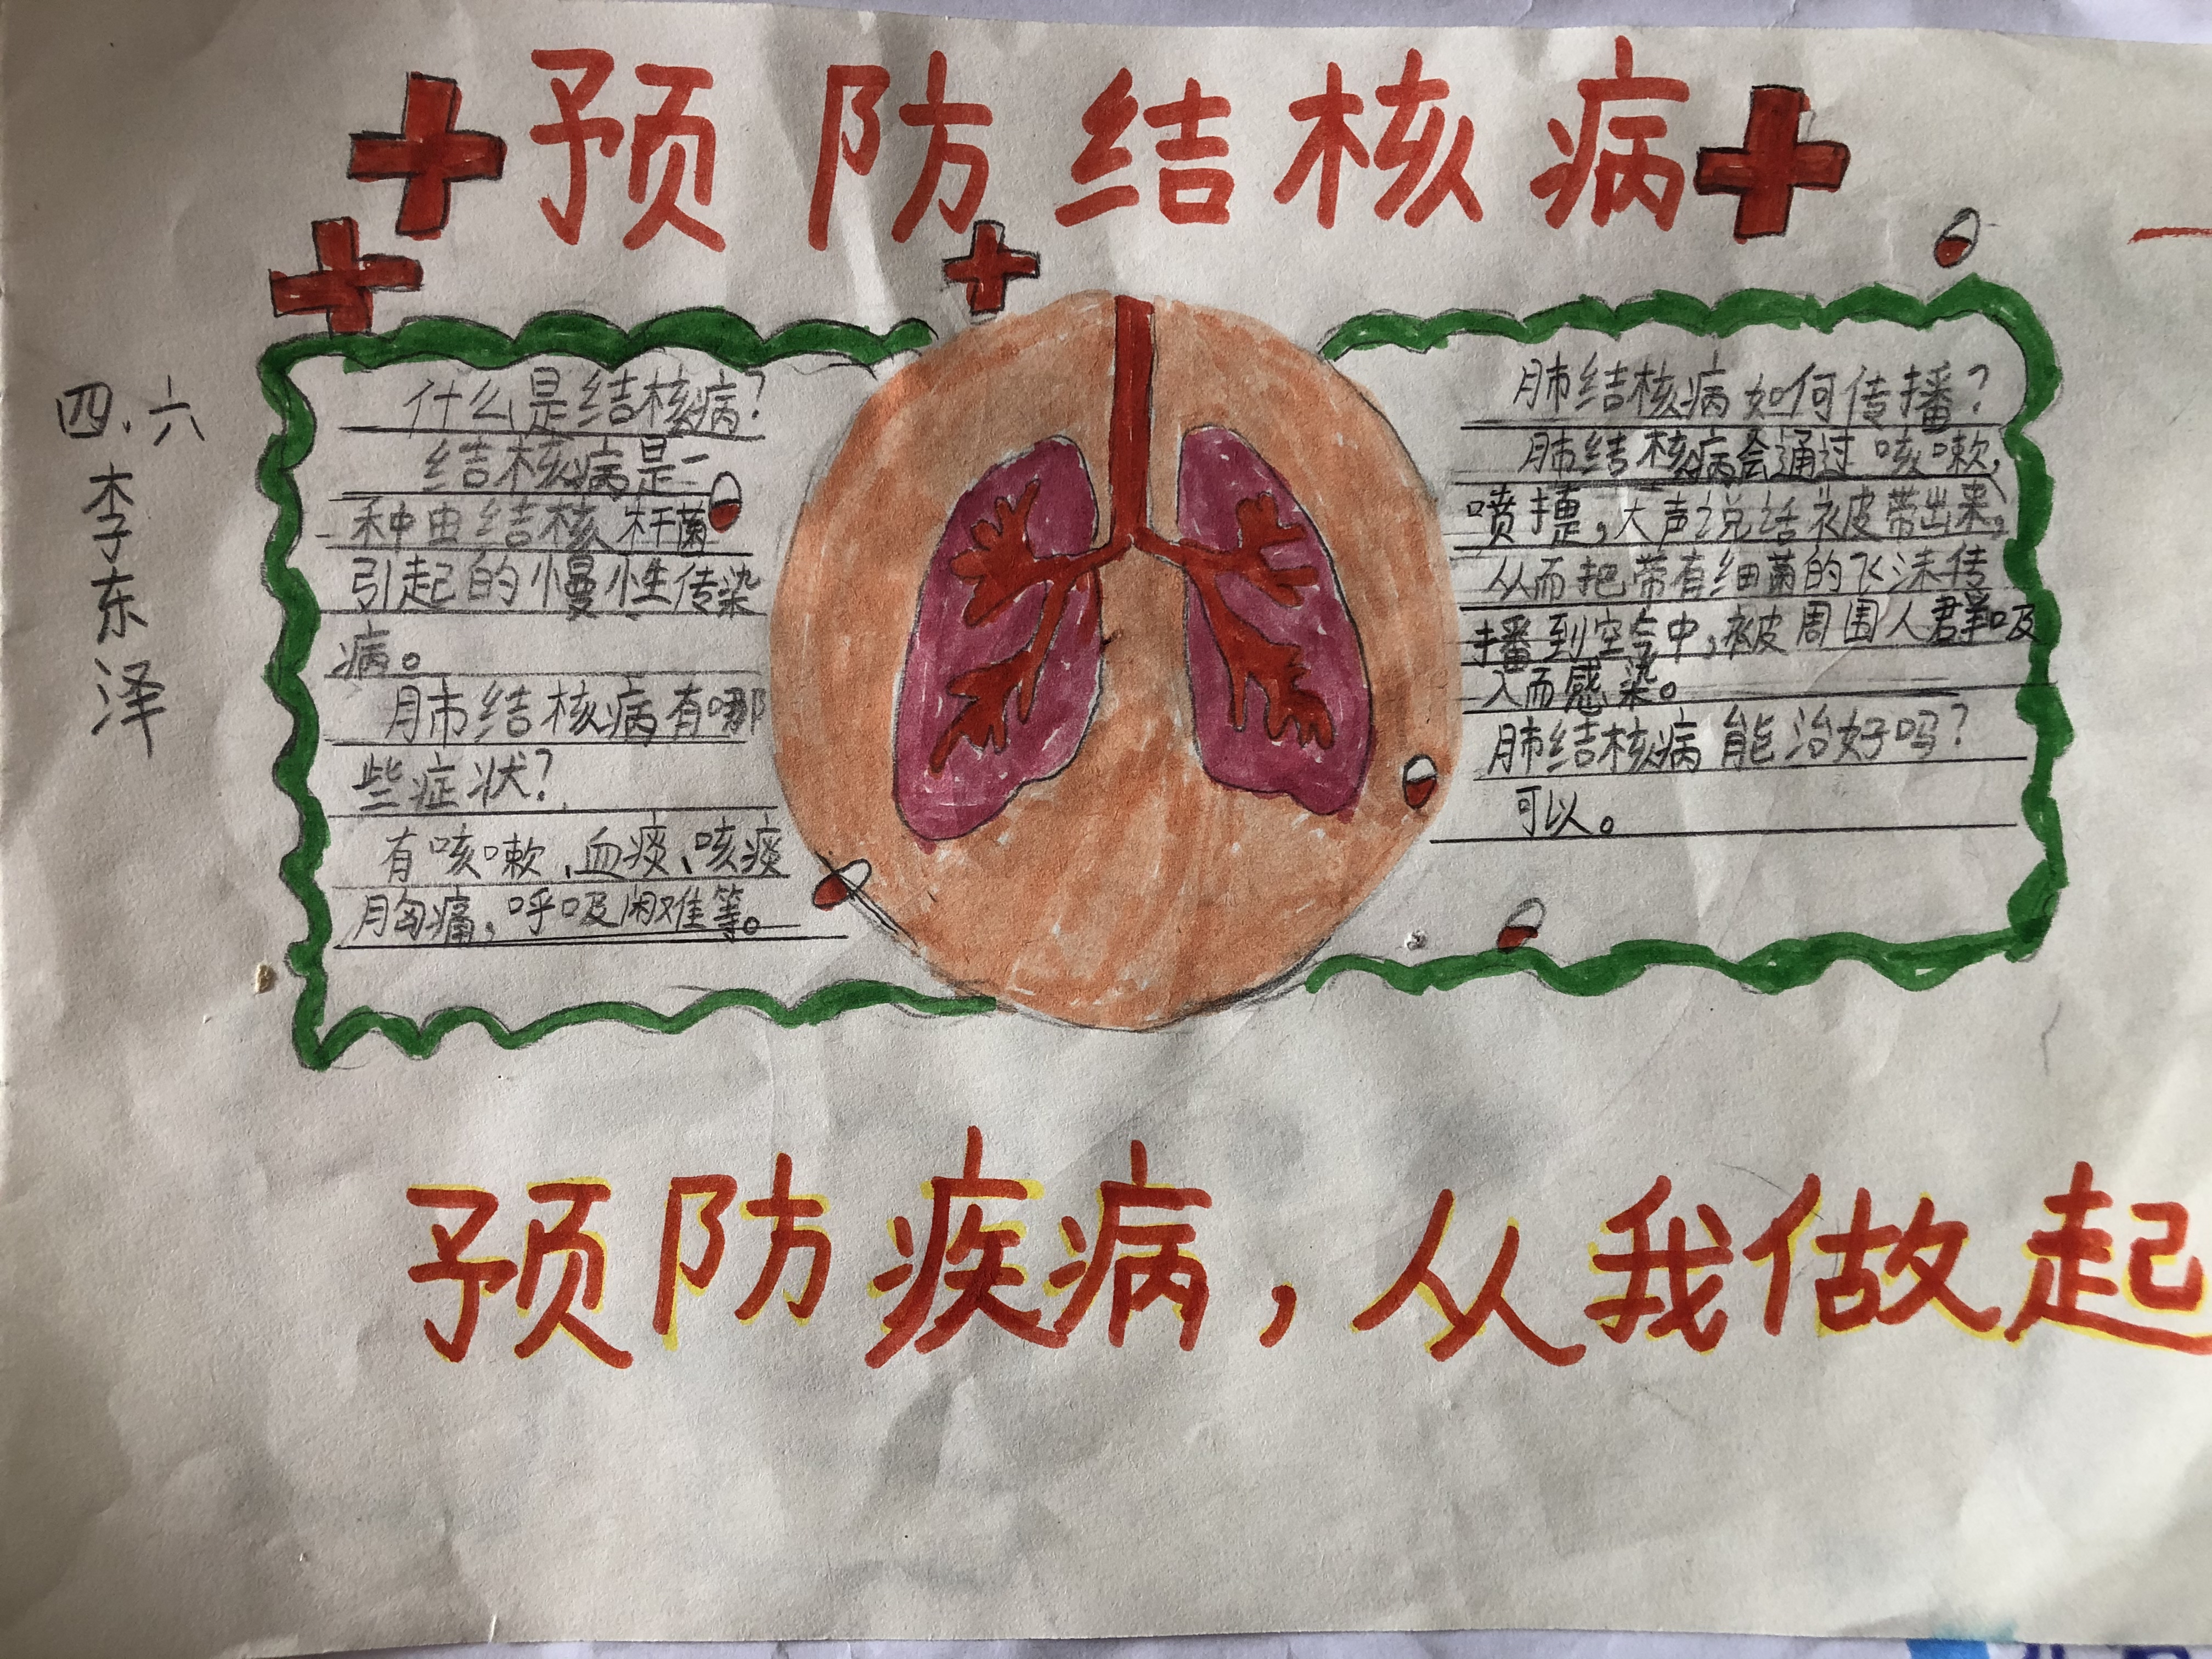 预防结核病
四.六
李东泽
什么是结核病?
结核病是一
种由结核杆菌
引起的慢性传染
病。
肺结核病有哪
些症状?
有咳嗽、血痰、咳痰
胸痛,呼吸困难等。
肺结核病如何传播?
肺结核病会通过咳嗽,
喷嚏,大声说话被带出来,
从而把带有细菌的飞沫传
播到空气中,被周围人群吸
入而感染。
肺结核病能治好吗?
可以。
预防疾病,从我做起